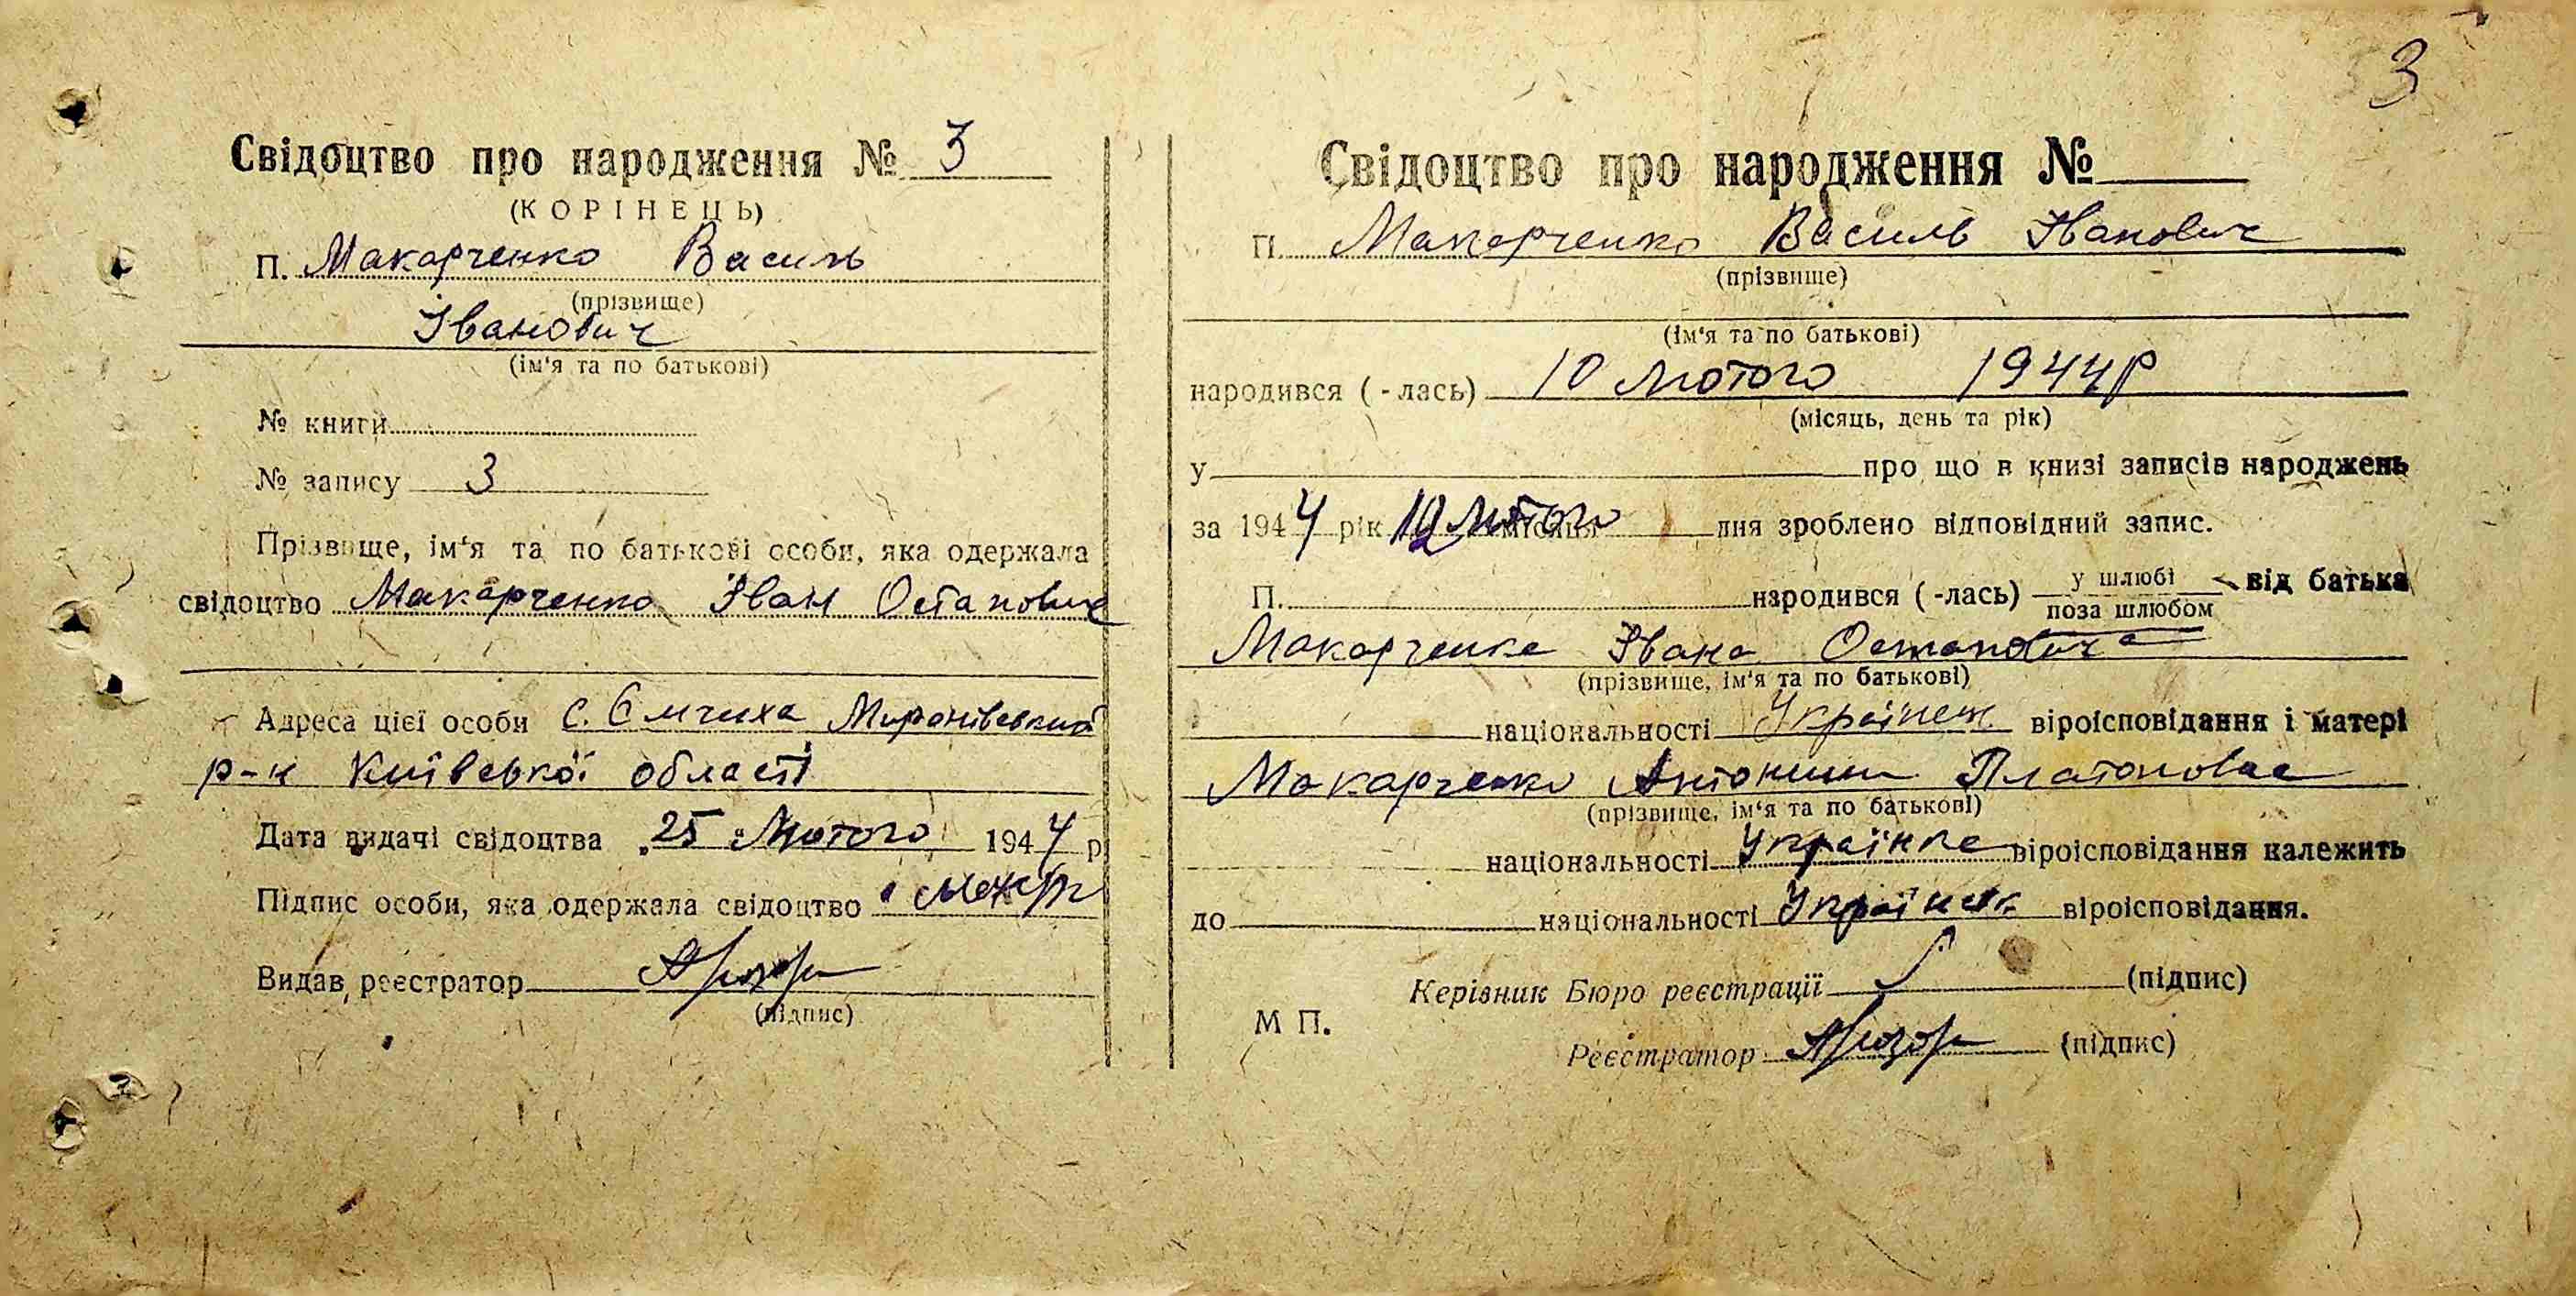 3
Свідоцтво про народження № 3
(КОРІНЕЦЬ)
П. Макарченко Василь
(прізвище)
Іванович
(ім'я та по батькові)
№ книги
№ запису 3
Прізвище, ім'я та по батькові особи, яка одержала
свідоцтво Макарченко Іван Остапович
Адреса цієї особи с. Ємчиха Миронівський
р-н Київської області
Дата видачі свідоцтва „25 Лютого 1944 р
Підпис особи, яка одержала свідоцтво
Видав реєстратор
(підпис)
Свідоцтво про народження №
П. Макарченко Василь Іванович
(прізвище)
(ім'я та по батькові)
народився (-лась) 10 Лютого 1944р
(місяць, день та рік)
у про що в книзі записів народжень
за 1944 рік Лютого місяця дня зроблено відповідний запис.
П. народився (-лась) у шлюбі поза шлюбом від батька
Макарченка Івана Остаповича
(прізвище, ім'я та по батькові)
національності Українец віроісповідання і матері
Макарченко Антонини Платоновае
(прізвище, ім'я та по батькові)
національності Українка віроісповідання належить
до національності віроісповідання.
Керівник Бюро реєстрації (підпис)
М П.
Реєстратор (підпис)